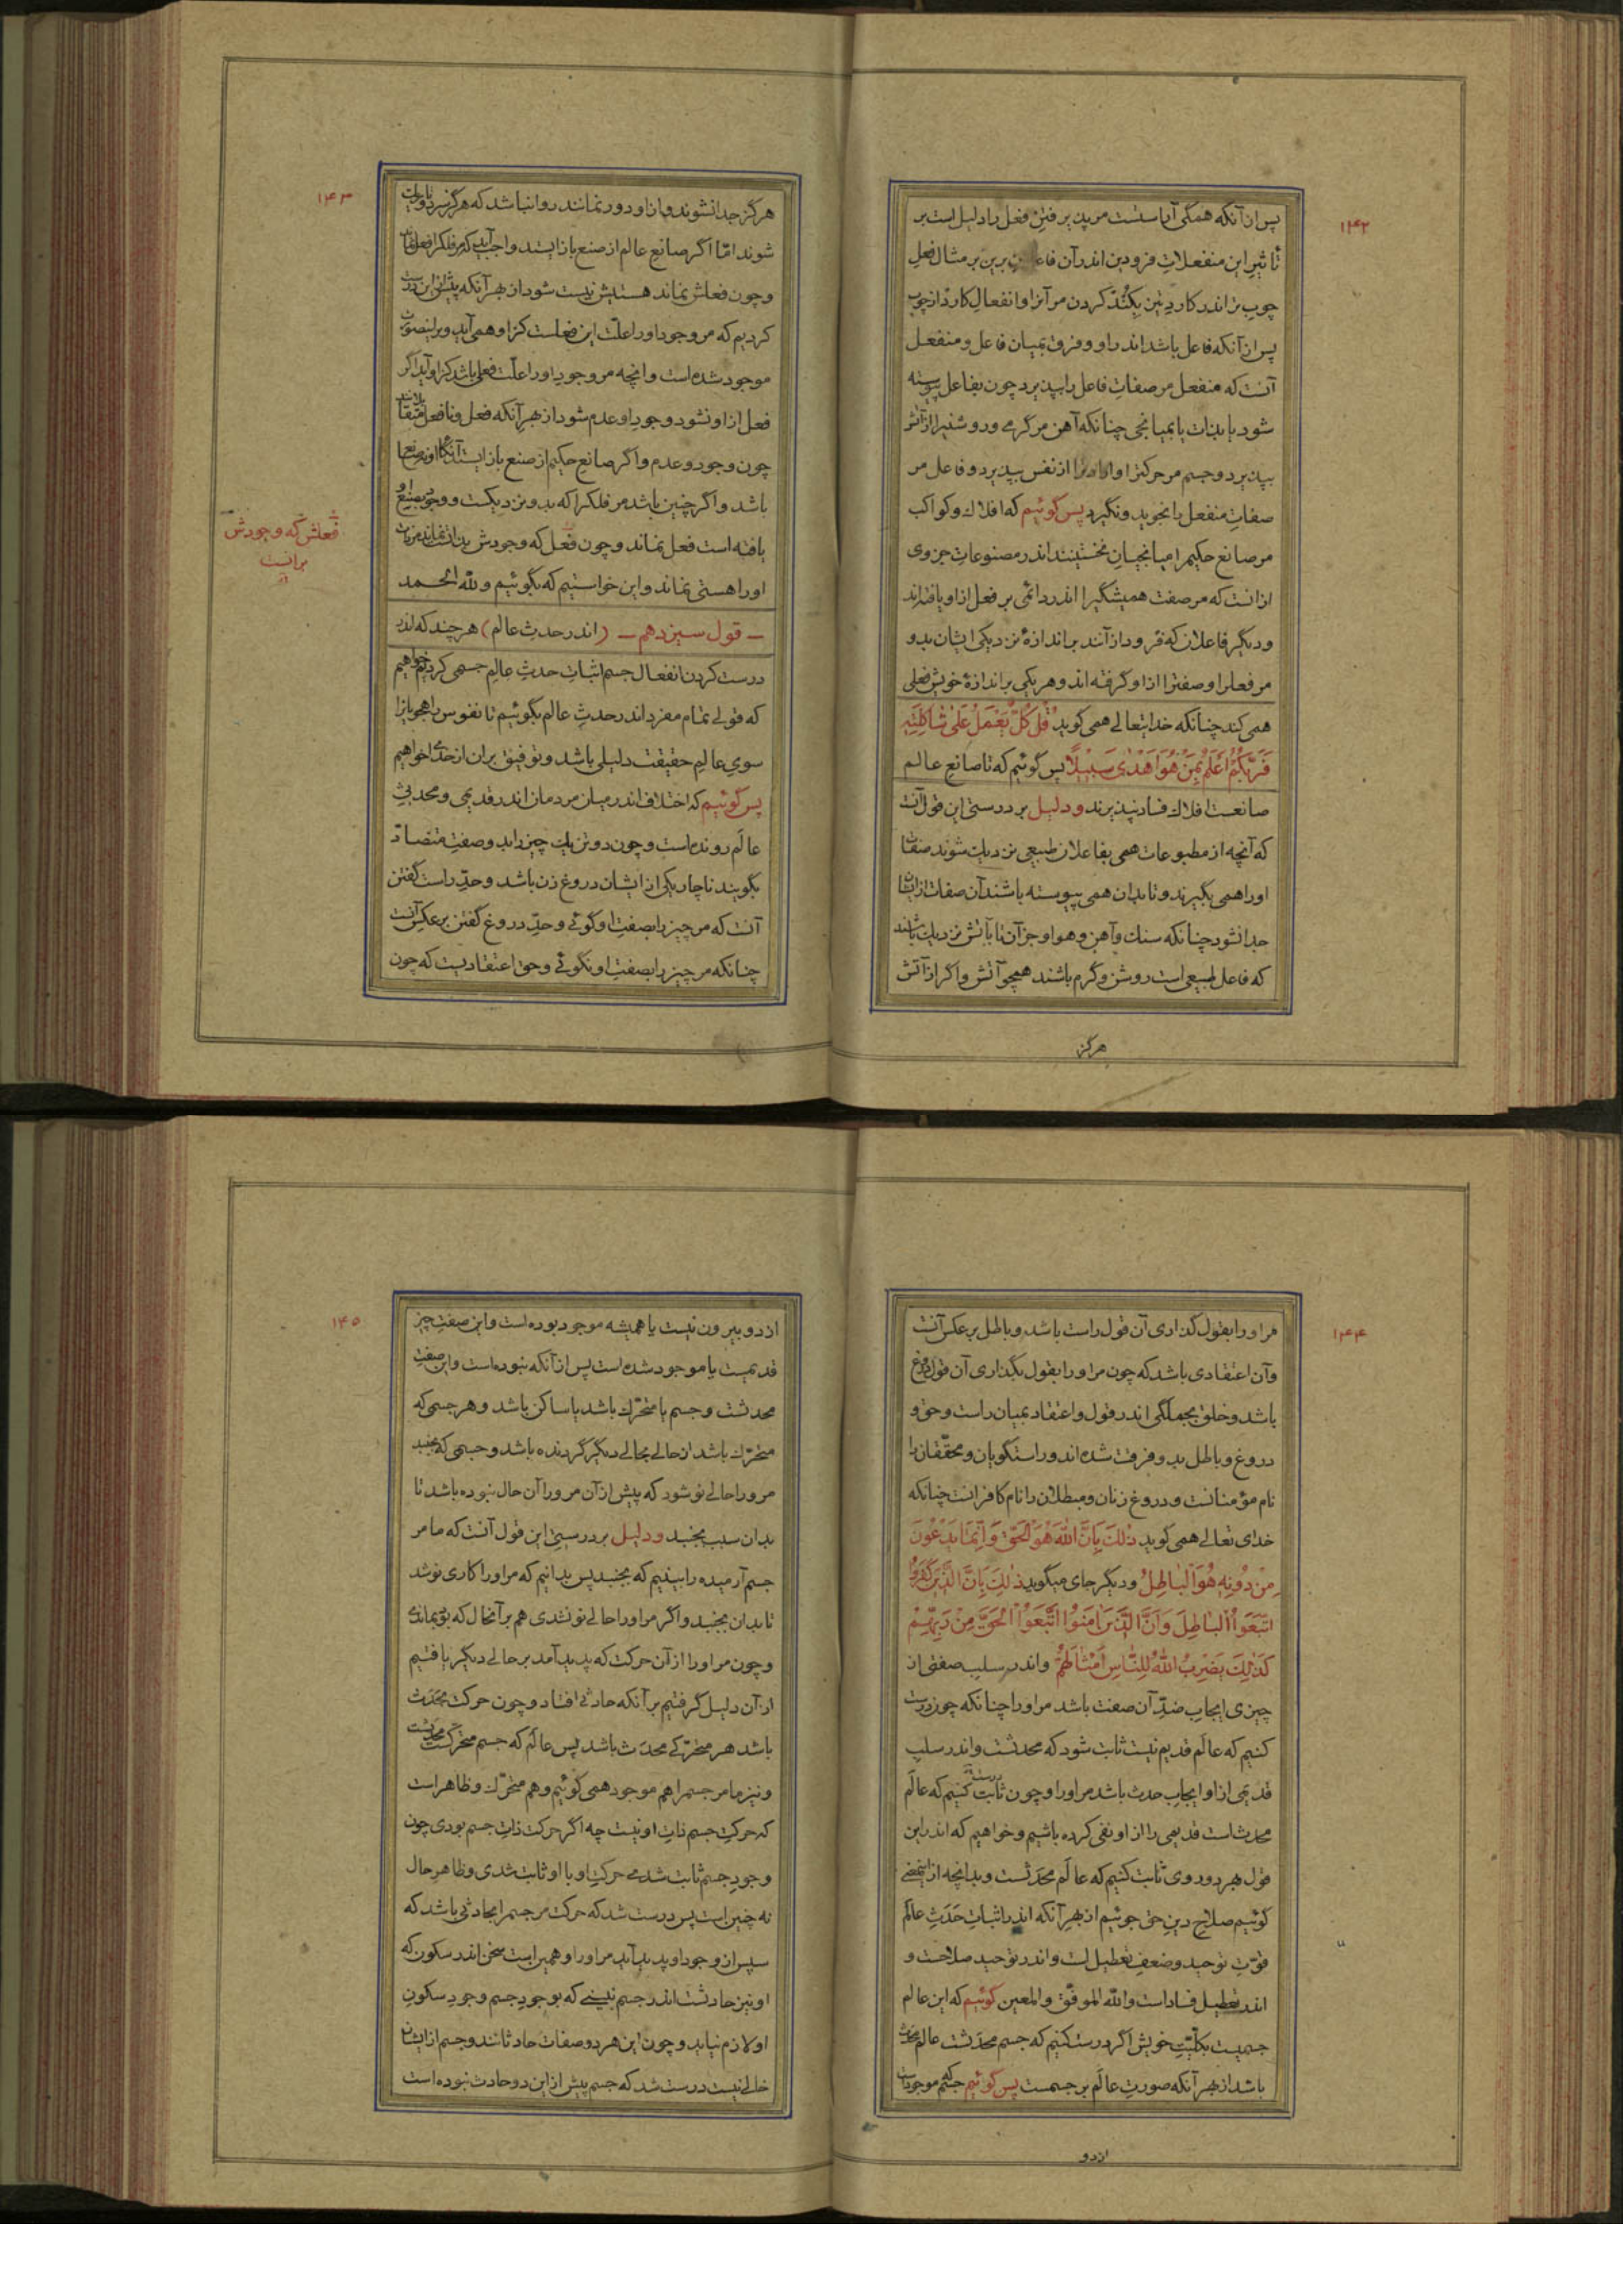 ۱۴۲
پس از آنکه همگی آباستست مر پدیرفتن فعل را دلیل است بر
تأثیر این منفعلات فرودین اندر آن فاعلان برین بر مثال فعل
چوب تر اندر کارد تیز بکند کردن مر آنرا و انفعال کارد از چوب
پس از آنکه فاعل باشد اندر او و فرق بمیان فاعل و منفعل
آنست که منفعل مر صفات فاعل را بپذیرد چون بفاعل پیوسته
شود یا بذات یا بمیانجی چنانکه آهن مر گرمی و روشنیرا از آتش
بپذیرد و جسم مر حرکترا و ارادترا از نفس بپذیرد و فاعل مر
صفات منفعل را نجوید و نگیرد پس گوئیم که افلاك و کواکب
مر صانع حکیم را میانجیان نخستینند اندر مصنوعات جزوی
از انست که مر صفت همیشگیرا اندر دائمی بر فعل از او یافته‌اند
و دیگر فاعلان که فرود از آنند بر اندازهٔ نزدیکی ایشان بدو
مر فعل را و صفترا از او گرفته‌اند و هر یکی بر اندازهٔ خویش فعلی
همی کند چنانکه خدایتعالی همی گوید قُلْ كُلٌّ يَعْمَلُ عَلَى شَاكِلَتِهِ
فَرَبُّكُمْ أَعْلَمُ بِمَنْ هُوَ أَهْدَى سَبِيلًا پس گوئیم که تا صانع عالم
صانعست افلاك فساد نپذیرند و دلیل بر درستی این قول آنست
که آنچه از مطبوعات همی بفاعلان طبیعی نزدیك شوند صفات
او را همی بگیرند و تا بدان همی پیوسته باشند آن صفات از ایشان
جدا نشود چنانکه سنك و آهن و هوا و جز آن تا بآتش نزدیك باشند
که فاعل طبیعی است روشن و گرم باشند همچو آتش و اگر از آتش
هرگز
۱۴۳
هرگز جدا نشوند و از او دور نمانند روا نباشد که هرگز سرد و تاریك
شوند امّا اگر صانع عالم از صنع باز ایستد واجب آید که مر فلك را فعل نماند
و چون فعلش نماند هستیش نیست شود از بهر آنکه پیش از این درست
کردیم که مر وجود او را علّت این فعلست کز او همی آید و بر اینصورت
موجود شده است و انچه مر وجود او را علّت فعلی باشد کز او آید اگر
فعل از او نشود وجود او عدم شود از بهر آنکه فعل و نافعل متقابلانند
چون وجود و عدم و اگر صانع حکیم از صنع باز ایستد آنگاه او نه صانع
باشد و اگر چنین باشد مر فلك را که بدو نزدیکست و وجود بصنع او
یافته است فعل نماند و چون فعل که وجودش بدانست نماند مر ذات
او را هستی نماند و این خواستیم که بگوئیم و لله الحمد
فعلش که وجودش
برانست
ـ قول سیزدهم ـ (اندر حدث عالم) هرچند که اندر
درست کردن انفعال جسم اثبات حدث عالم جسمی کردیم خواهیم
که قولی تمام مفرد اندر حدث عالم بگوئیم تا نفوس راهجویانرا
سوی عالم حقیقت دلیلی باشد و توفیق بران از خدای خواهیم
پس گوئیم که اختلاف اندر میان مردمان اندر قدیمی و محدثی
عالَم رونده است و چون دو تن یك چیز را بدو صفت متضادّ
بگویند ناچار یکی از ایشان دروغ زن باشد و حدّ راست گفتن
آنست که مر چیز را بصفت او گوئی و حدّ دروغ گفتن بر عکس آنست
چنانکه مر چیز را بصفت او نگوئی و حق اعتقادیست که چون
۱۴۴
مر او را بقول گذاری آن قول راست باشد و باطل بر عکس آنست
و آن اعتقادی باشد که چون مر او را بقول بگذاری آن قول دروغ
باشد و خلق بجملگی اندر قول و اعتقاد بمیان راست و حق و
دروغ و باطل بدو فرقت شده‌اند و راستگویان و محقّقان را
نام مؤمنانست و دروغ زنان و مبطلان را نام کافرانست چنانکه
خدای تعالی همی گوید ذٰلِكَ بِاَنَّ اللّٰهَ هُوَ الْحَقُّ وَ اَنَّمَا يَدْعُونَ
مِنْ دُونِهِ هُوَ الْبَاطِلُ و دیگر جای میگوید ذٰلِكَ بِاَنَّ الَّذِينَ كَفَرُوا
اتَّبَعُوا الْبَاطِلَ وَ اَنَّ الَّذِينَ اٰمَنُوا اتَّبَعُوا الْحَقَّ مِنْ رَبِّهِمْ
كَذٰلِكَ يَضْرِبُ اللّٰهُ لِلنَّاسِ اَمْثَالَهُمْ و اندر سلب صفتی از
چیزی ایجاب ضدّ آن صفت باشد مر او را چنانکه چون درست
کنیم که عالَم قدیم نیست ثابت شود که محدثست و اندر سلب
قدیمی از او ایجاب حدث باشد مر او را و چون ثابت کنیم که عالَم
محدث است قدیمی را از او نفی کرده باشیم و خواهیم که اندر این
قول بهر دو روی ثابت کنیم که عالَم محدَثست و بدانچه از این معنی
گوئیم صلاح دین حق جوئیم از بهر آنکه اندر اثبات حَدَث عالَم
قوّت توحید و ضعف تعطیل است و اندر توحید صلاحست و
اندر تعطیل فساد است و اللّه الموفّق و المعین گوئیم که این عالم
جسمیست بکلّیّت خویش اگر درست کنیم که جسم محدَثست عالم محدث
باشد از بهر آنکه صورت عالَم بر جسمست پس گوئیم که جسم موجود است
از دو
۱۴۵
از دو بیرون نیست یا همیشه موجود بوده است و این صفت چیز
قدیمست یا موجود شده است پس از آنکه نبوده است و این صفت
محدثست و جسم یا متحرّك باشد یا ساکن باشد و هر جسمی که
متحرّك باشد از حالی بحالی دیگر گردنده باشد و جسمی که بجنبد
مر ورا حالی نو شود که پیش از آن مر ورا آن حال نبوده باشد تا
بدان سبب بجنبد و دلیل بر درستی این قول آنست که ما مر
جسم آرمیده را بینیم که بجنبد پس بدانیم که مر او را کاری نو شد
تا بدان بجنبید و اگر مر او را حالی نو نشدی هم بر آنحال که بود بماندی
و چون مر او را از آن حرکت که پدید آمد بر حالی دیگر یافتیم
از آن دلیل گرفتیم بر آنکه حادثی افتاد و چون حرکت محدَث
باشد هر متحرّکی محدَث باشد پس عالَم که جسم متحرّکست محدثست
و نیز ما مر جسم را هم موجود همی گوئیم و هم متحرّك و ظاهر است
که حرکت جسم ذات او نیست چه اگر حرکت ذات جسم بودی چون
وجود جسم ثابت شدی حرکت او با او ثابت شدی و ظاهر حال
نه چنین است پس درست شد که حرکت مر جسم را بحادثی باشد که
سپس از وجود او پدید آید مر او را و همین است سخن اندر سکون که
او نیز حادثست اندر جسم نبینی که بوجود جسم وجود سکون
او لازم نیاید و چون این هر دو صفات حادثانند و جسم از ایشان
خالی نیست درست شد که جسم پیش از این دو حادث نبوده است